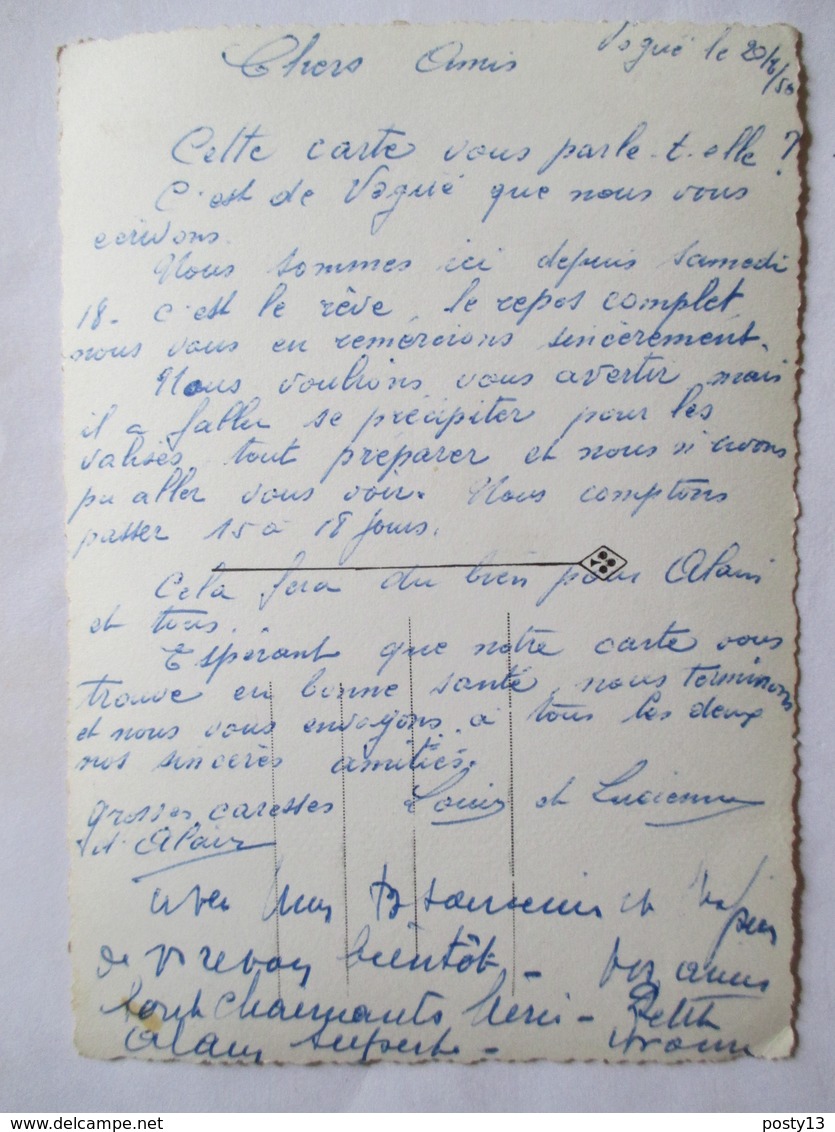 Vogué le 20/6/50
Chers Amis
Cette carte vous parle-t-elle ?
C'est de Vogué que nous vous
écrivons.
Nous sommes ici depuis samedi
18. C'est le rêve, le repos complet,
nous vous en remercions sincèrement.
Nous voulions vous avertir mais
il a fallu se précipiter pour les
valises, tout préparer et nous n'avons
pu aller vous voir. Nous comptons
passer 15 à 18 jours.
Cela fera du bien pour Alain
et tous.
Espérant que notre carte vous
trouve en bonne santé, nous terminons
et nous vous envoyons à tous les deux
nos sincères amitiés.
grosses caresses Louis et Lucienne
d'Alain
avec mon souvenir et
de revoir bientôt - Vos amis
sont charmants - Petit
Alain superbe -
delcampe.net
posty13